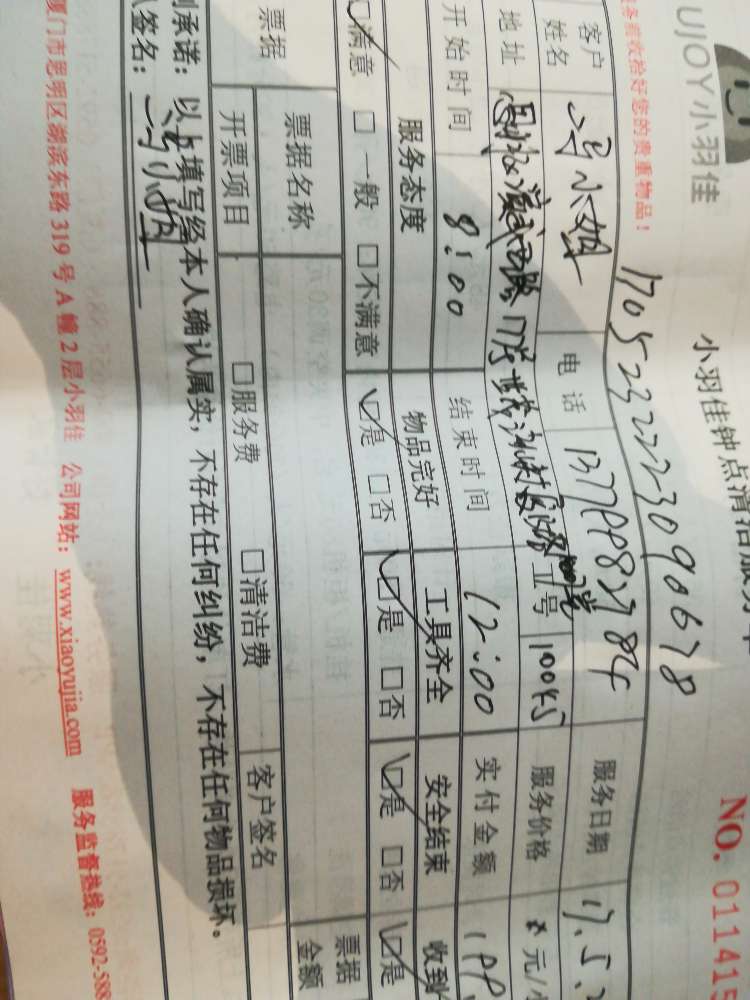 UJOY小羽佳
小羽佳钟点清洁服务单
NO. 011415
服务前收拾好您的贵重物品！
1705232223090678
客户姓名 冯小姐 电话 服务日期 17.5.
地址 工号 10045 服务价格 元/
开始时间 8:00 结束时间 12:00 实付金额
服务态度 物品完好 工具齐全 安全结束 收到
☑满意 □一般 □不满意 ☑是 □否 ☑是 □否 ☑是 □否 ☑是
票据 票据名称 票据金额
开票项目 □服务费 □清洁费 客户签名
承诺：以上填写经本人确认属实，不存在任何纠纷，不存在任何物品损坏。
签名：冯小姐
厦门市思明区湖滨东路 319 号 A 幢 2 层小羽佳 公司网站：www.xiaoyujia.com 服务监督热线：0592-588